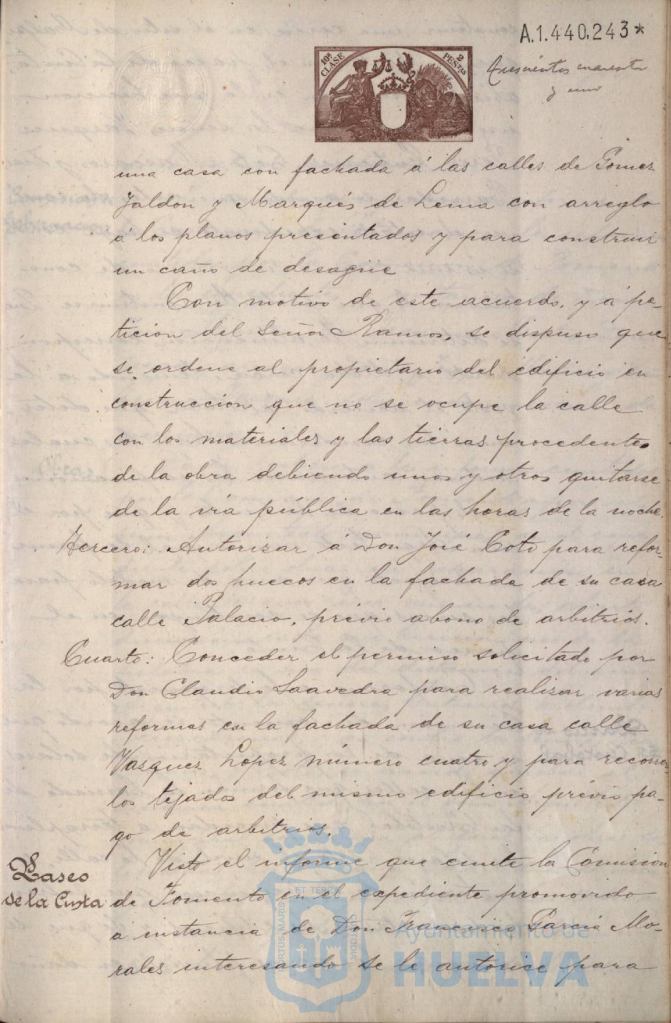 A.1.440.243*
10ª CLASE
2 PESETAS
y uno
una casa con fachada á las calles de Gomez
Jaldon y Marqués de Lema con arreglo
á los planos presentados y para construir
un caño de desagüe
Con motivo de este acuerdo, y á pe-
ticion del Señor Ramos, se dispuso que
se ordene al propietario del edificio en
construccion que no se ocupe la calle
con los materiales y las tierras procedentes
de la obra debiendo unos y otros quitarse
de la via pública en las horas de la noche.
Tercero: Autorizar á Don José Coto para refor-
mar dos huecos en la fachada de su casa
calle Palacio, prévio abono de arbitrios.
Cuarto: Conceder el permiso solicitado por
Don Claudio Saavedra para realizar varias
reformas en la fachada de su casa calle
Vazquez Lopez número cuatro y para recorrer
los tejados del mismo edificio prévio pa-
go de arbitrios.
Paseo
de la Cinta
Visto el informe que emite la Comision
de Fomento en el expediente promovido
á instancia de Don Francisco Garcia Mo-
rales interesando se le autorice para
Ayuntamiento de
HUELVA